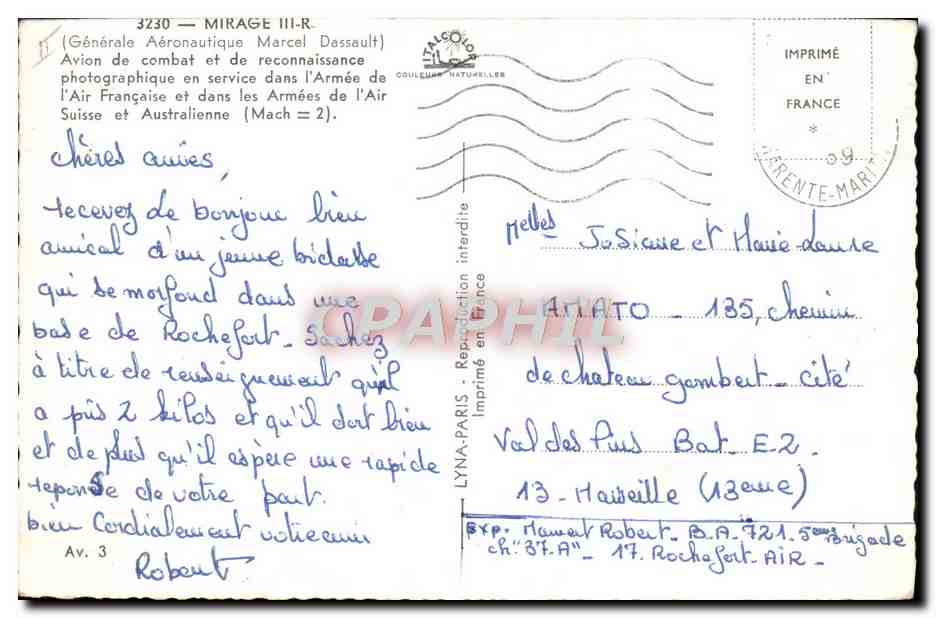 3230 — MIRAGE III-R
(Générale Aéronautique Marcel Dassault)
Avion de combat et de reconnaissance
photographique en service dans l'Armée de
l'Air Française et dans les Armées de l'Air
Suisse et Australienne (Mach = 2).
ITALCOLOR
COULEURS NATURELLES
IMPRIMÉ
EN
FRANCE
*
69
ARENTE-MARIT
chères amies,
recevez le bonjour bien
amical d'un jeune bidasse
qui se morfond dans une
base de Rochefort - Sachez
à titre de renseignement qu'il
a pris 2 kilos et qu'il dort bien
et de plus qu'il espère une rapide
reponse de votre part.
bien Cordialement votre ami
Robert
Av. 3
LYNA-PARIS - Reproduction interdite
Imprimé en France
Melles Josiane et Marie-Laure
AMATO - 135, chemin
de chateau gombert - Cité
Val des Pins Bat. E-2.
13 - Marseille (13eme)
Exp. Robert - B.A. 721. 5eme Brigade
ch. "37.A" - 17. Rochefort-AIR -
CPAPHIL